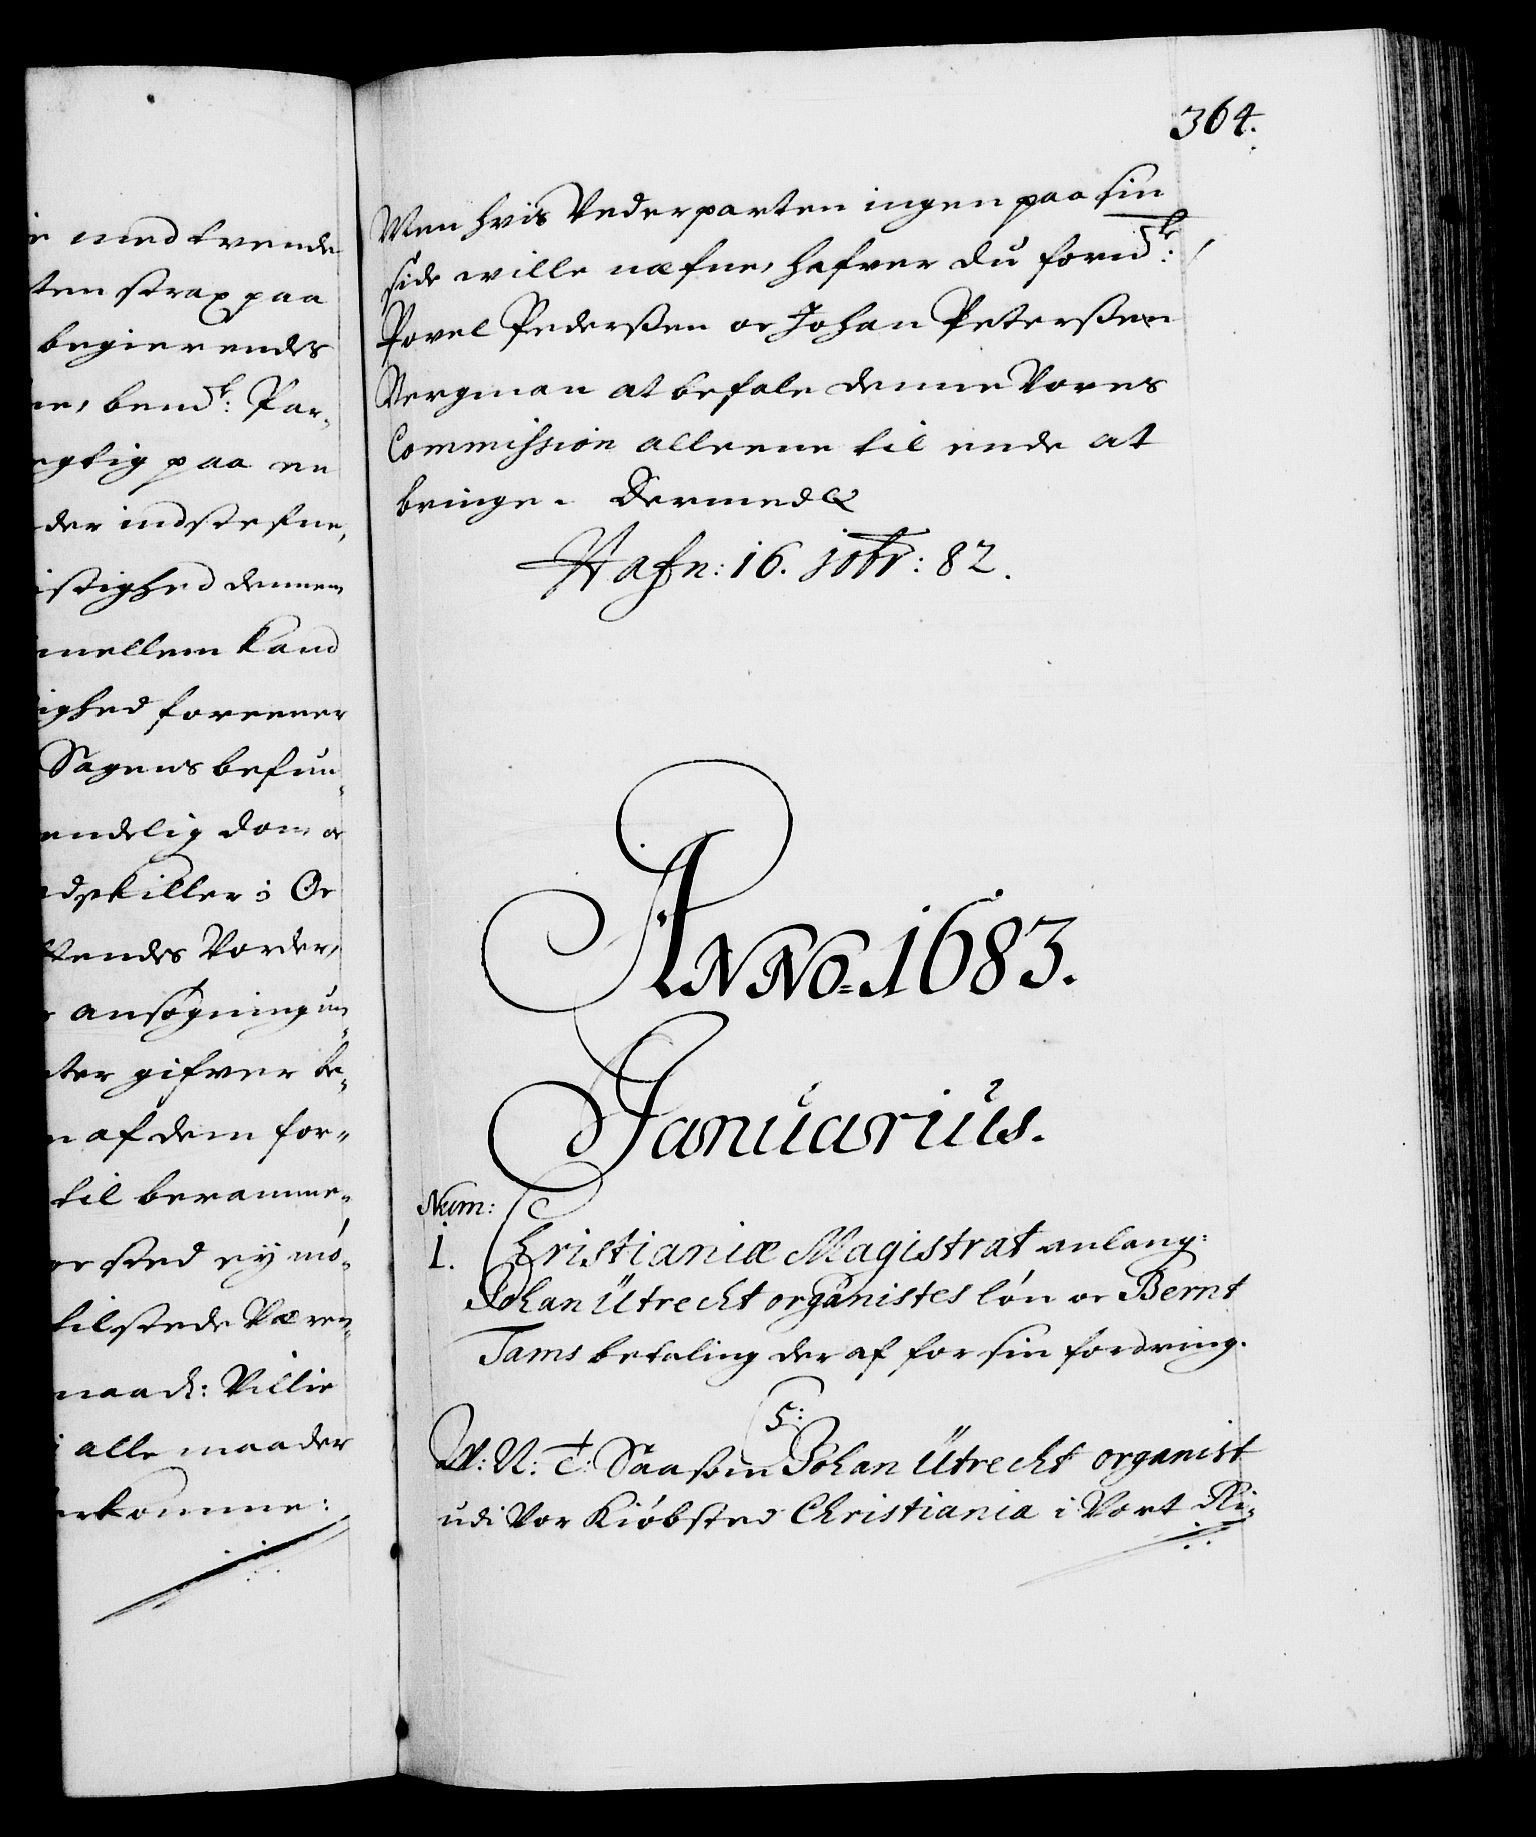 e med trende
ten strax paa
begierendes
ne, bemdte: Par-
egtig paa en
der indstefne,
istighed dennem
imellem kand
ighed foreener
Sagens befun-
endelig dom oc
adskiller; Oc
ttendes Vorder,
ansøgning un-
ter gifver be-
n af dem for-
til beramme-
er sted ey mø-
tilstede Væren-
naadl: Villie
i alle maader
erkomme:
364.
Men hvis Vederparten ingen paa sin
side wille næfne, hafver du fornde:
Povel Pederßen oc Johan Peterßen
Bergman at befale denne Vores
Commission alleene til ende at
bringe. Dermed &
Hafn: 16. xobr: 82.
ANNO. 1683.
Januarius.
Num:
1. Christianiæ Magistrat anlang:
Johan Utrecht organistes løn oc Bernt
Tams betaling der af for sin fordring.
C 5:
W: U: T: Saasom Johan Utrecht organist
udi Vor Kiøbsted Christiania i Vort Ri-